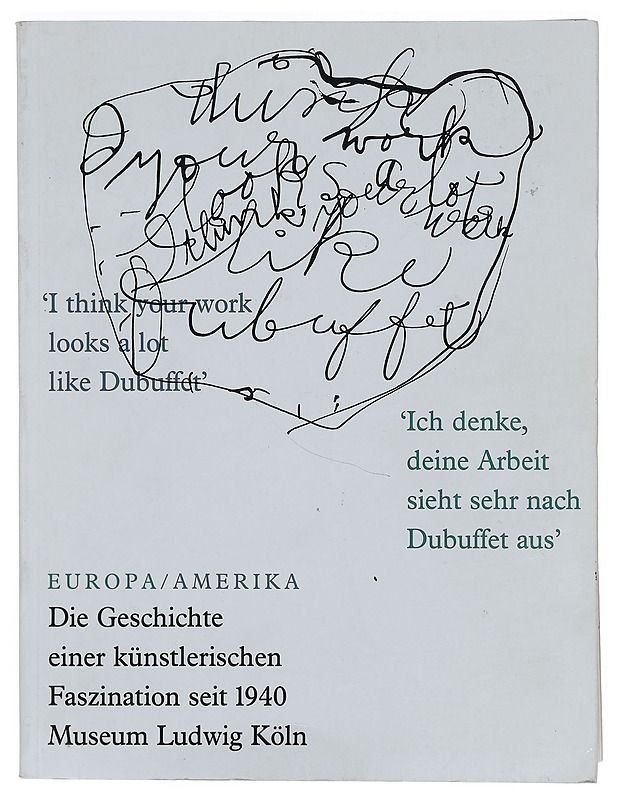 think
your work
looks a lot
I think your work
like
Dubuffet
‘I think your work
looks a lot
like Dubuffet’
‘Ich denke,
deine Arbeit
sieht sehr nach
Dubuffet aus’
EUROPA/AMERIKA
Die Geschichte
einer künstlerischen
Faszination seit 1940
Museum Ludwig Köln